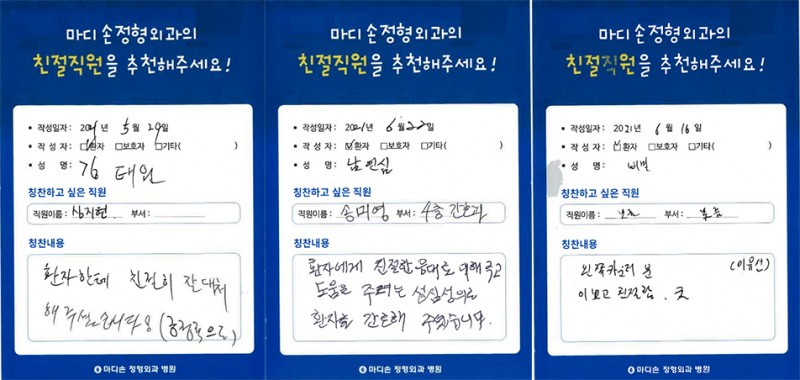 마디 손정형외과의
친절직원을 추천해주세요!
작성일자: 2021년 5월 29일
작 성 자: ☑환자 □보호자 □기타( )
성 명: 김태원
칭찬하고 싶은 직원
직원이름: 심지현 부서:
칭찬내용
환자한테 친절히 잘 대처
해 주셨습니다 (긍정적으로)
마디손 정형외과 병원
마디 손정형외과의
친절직원을 추천해주세요!
작성일자: 2021년 6월 22일
작 성 자: ☑환자 □보호자 □기타( )
성 명: 남연심
칭찬하고 싶은 직원
직원이름: 송미영 부서: 4층 간호과
칭찬내용
환자에게 친절한 응대로 이해 주고
도움을 주려는 성심성의로
환자를 간호해 주었습니다.
마디손 정형외과 병원
마디 손정형외과의
친절직원을 추천해주세요!
작성일자: 2021년 6월 16일
작 성 자: ☑환자 □보호자 □기타( )
성 명: 비밀
칭찬하고 싶은 직원
직원이름: 부서:
칭찬내용
분 (이유선)
친절함. 굿
마디손 정형외과 병원